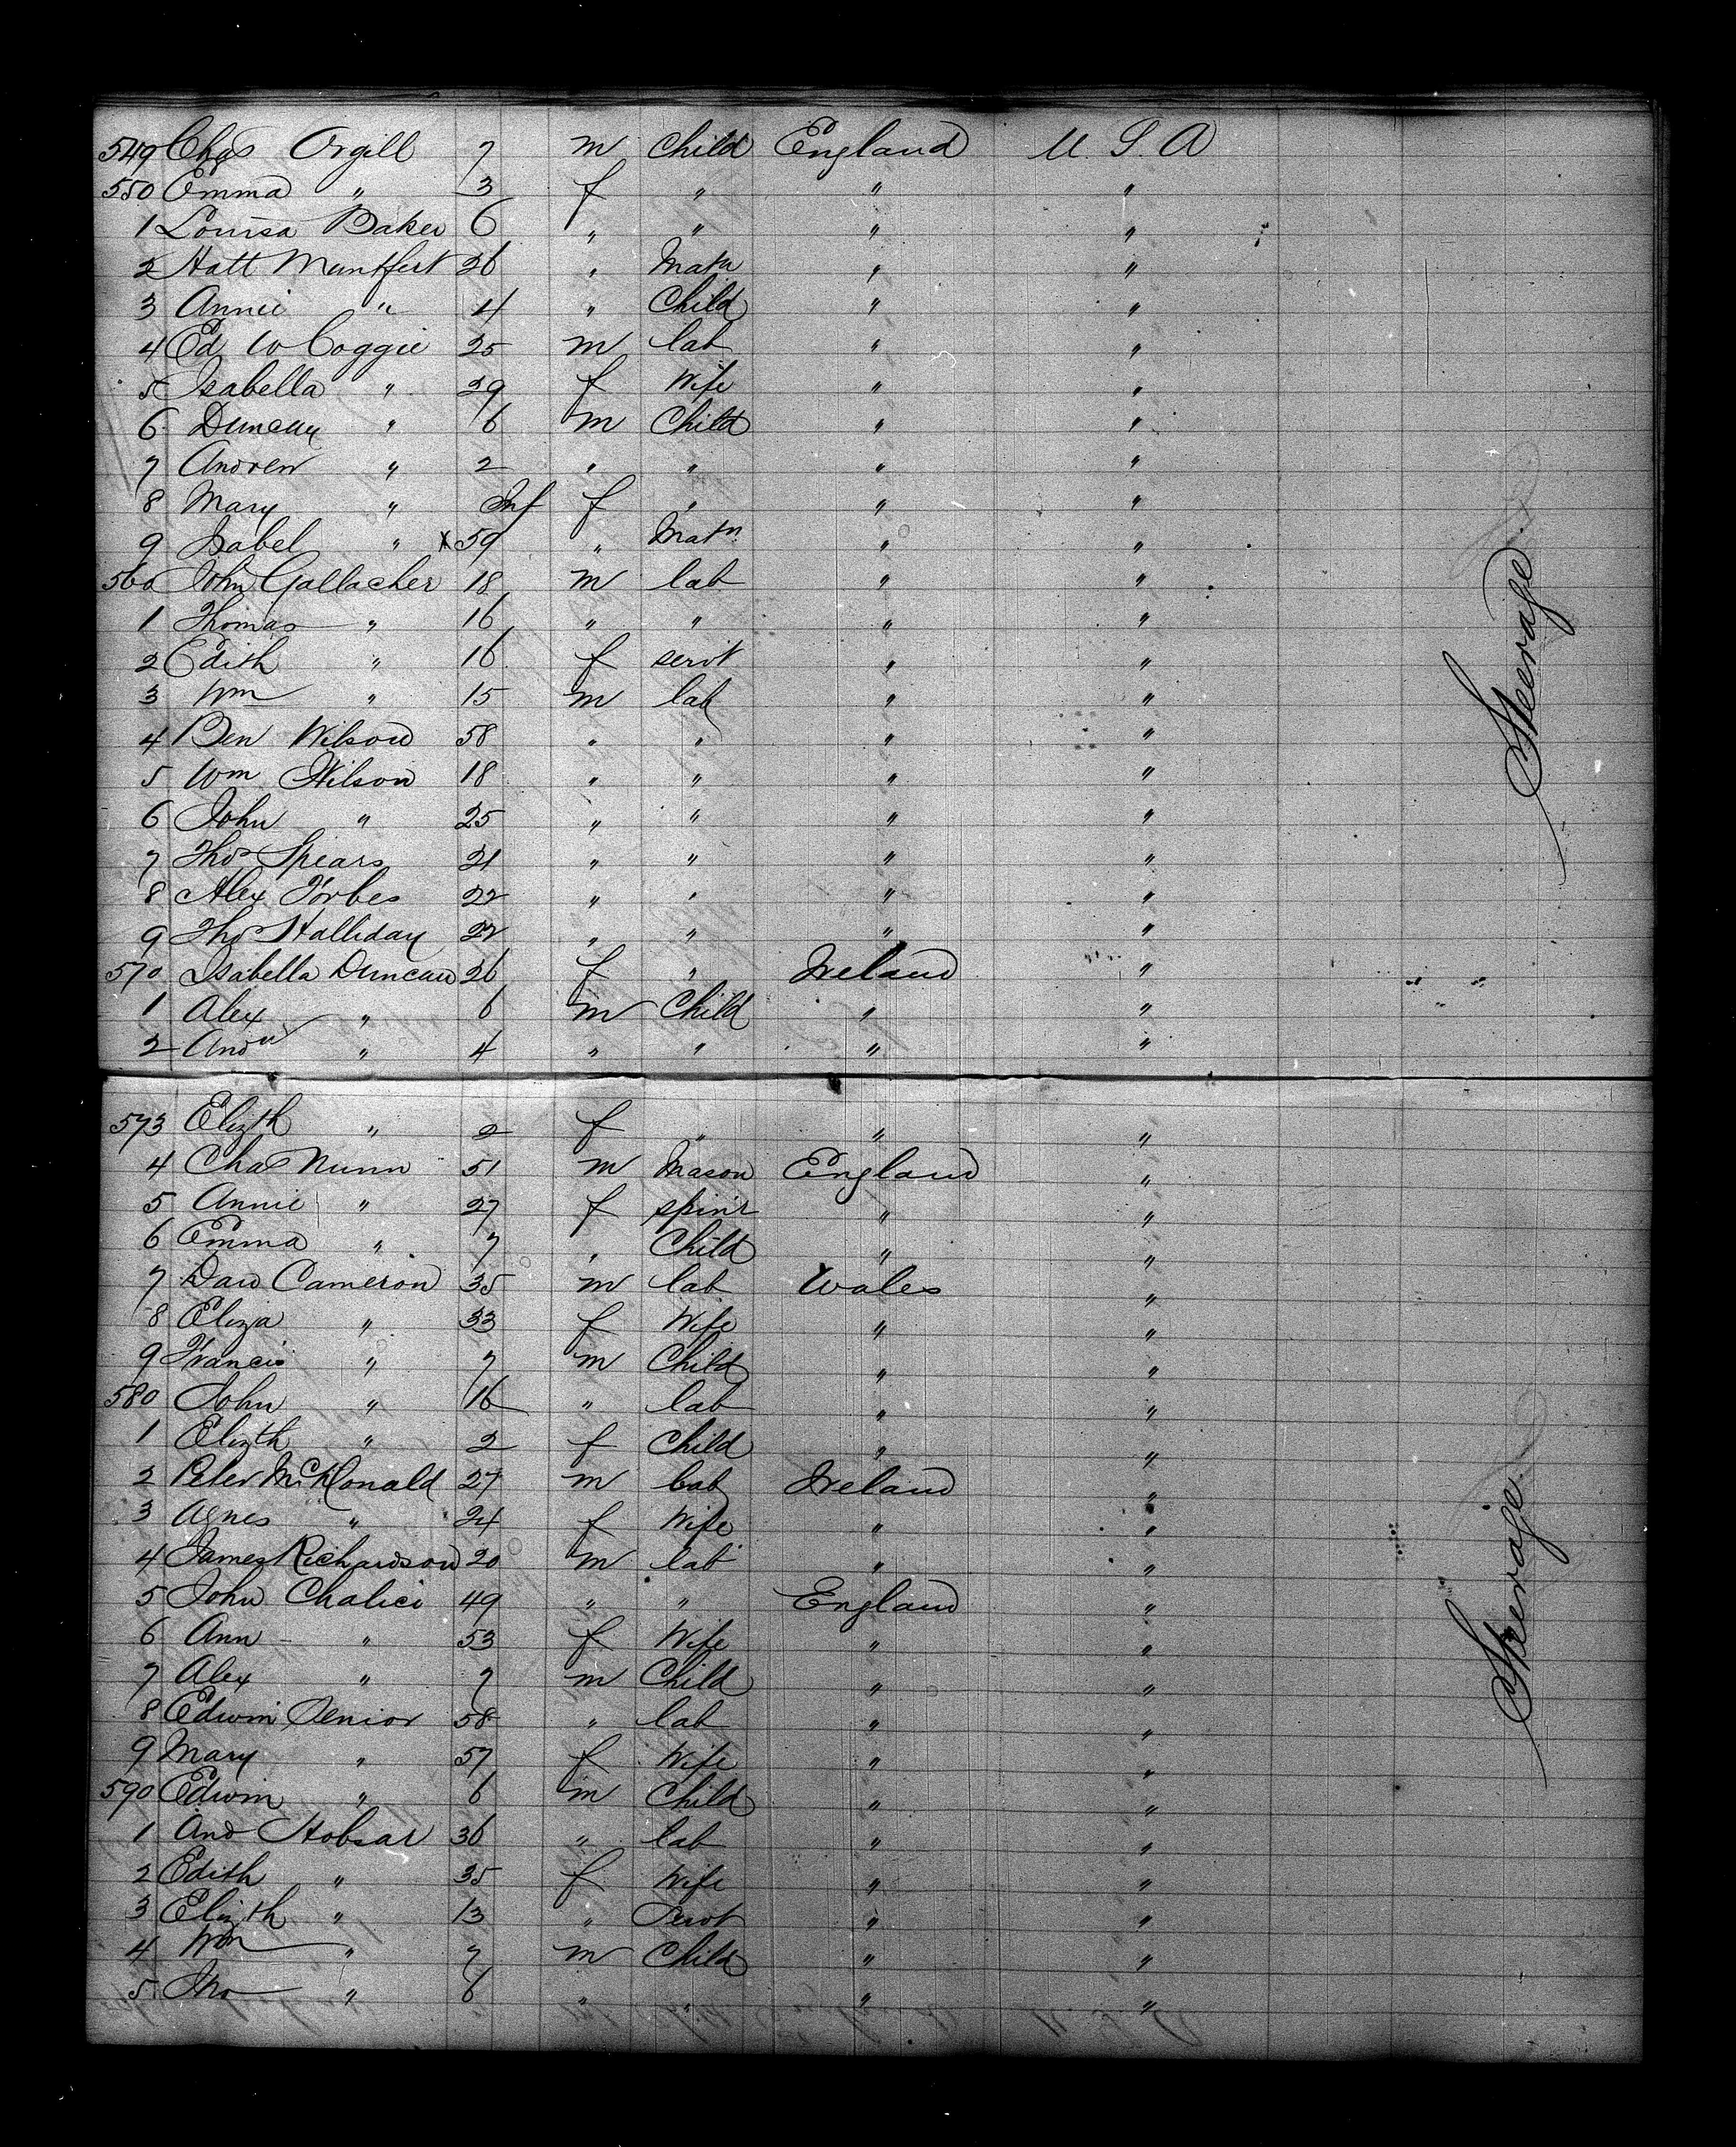 549 Chas Orgill 7 m Child England U.S.A
550 Emma " 3 f " " "
1 Louisa Baker 6 " " " "
2 Hatt Muntfert 26 " Matn " "
3 Annie " 4 " Child " "
4 Ed W Coggie 25 m lab " "
5 Isabella " 29 f Wife " "
6 Duncan " 6 m Child " "
7 Andrew " 2 " " " "
8 Mary " Inf f " " "
9 Isabel " x 59 " Matn " "
560 John Gallacher 18 m lab " "
1 Thomas " 16 " " " "
2 Edith " 16 f servt " "
3 Wm " 15 m lab " "
4 Ben Wilson 58 " " " "
5 Wm Wilson 18 " " " "
6 John " 25 " " " "
7 Thos Spears 21 " " " "
8 Alex Forbes 22 " " " "
9 Thos Halliday 22 " " " "
570 Isabella Duncan 26 f " Ireland "
1 Alex " 6 m Child " "
2 Andw " 4 " " " "
Steerage
573 Elizth " 2 f " " "
4 Chas Nunn 51 m Mason England "
5 Annie " 27 f spinr " "
6 Emma " 7 " Child " "
7 Davd Cameron 35 m lab Wales "
8 Eliza " 33 f Wife " "
9 Francis " 7 m Child " "
580 John " 16 " lab " "
1 Elizth " 2 f Child " "
2 Peter McDonald 27 m lab Ireland "
3 Agnes " 24 f Wife " "
4 James Richardson 20 m lab " "
5 John Chalici 49 " " England "
6 Ann " 53 f Wife " "
7 Alex " 7 m Child " "
8 Edwin Senior 58 " lab " "
9 Mary " 57 f Wife " "
590 Edwin " 6 m Child " "
1 And Hobsar 36 " lab " "
2 Edith " 35 f Wife " "
3 Elizth " 13 " Servt " "
4 Wm " 7 m Child " "
5 Jno " 6 " " " "
Steerage